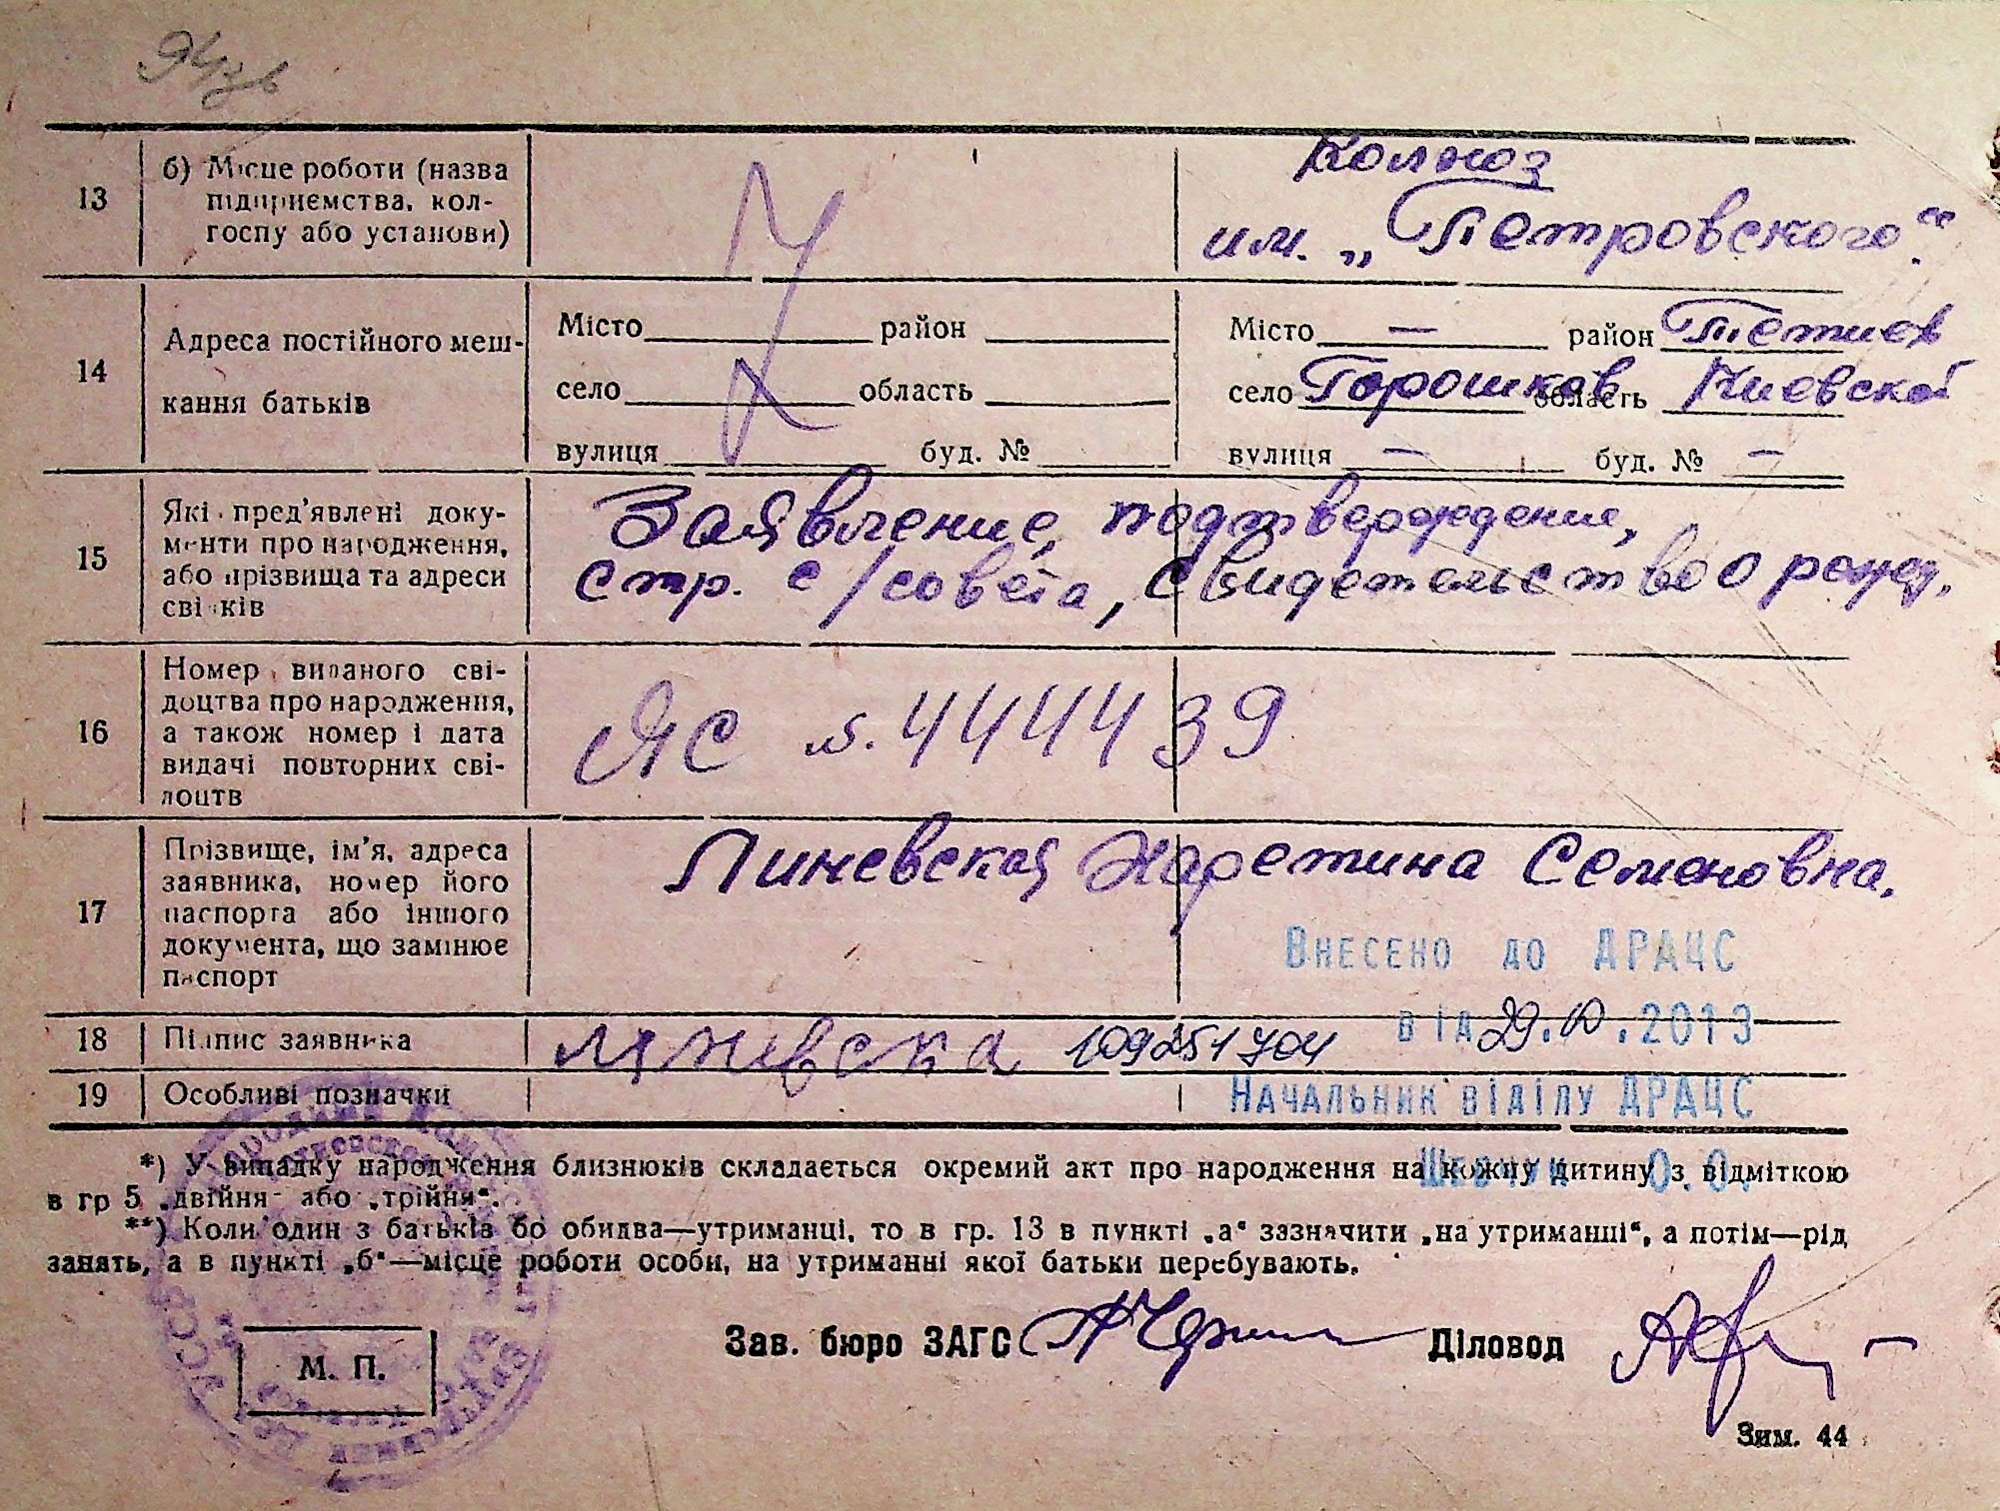 13
б) Місце роботи (назва
підприємства, кол-
госпу або установи)
Колхоз
им. „Петровского“.
14
Адреса постійного меш-
кання батьків
Місто район
село область
вулиця буд. №
Місто — район Тетиев
село Горошков область Киевской
вулиця — буд. № —
15
Які пред'явлені доку-
менти про народження,
або прізвища та адреси
свідків
Заявление, подтверждение,
стр. с/совета, свидетельство о рожд.
16
Номер виданого сві-
доцтва про народження,
а також номер і дата
видачі повторних сві-
доцтв
ЯС №. 444439
17
Прізвище, ім'я, адреса
заявника, номер його
паспорта або іншого
документа, що замінює
паспорт
Линевская Харетина Семеновна.
Внесено до ДРАЦС
від 29.10.2013
18
Підпис заявника
Линевска 109251704
19
Особливі позначки
Начальник відділу ДРАЦС
Шевчук О.О.
*) У випадку народження близнюків складається окремий акт про народження на кожну дитину з відміткою
в гр 5 „двійня“ або „трійня“.
**) Коли один з батьків бо обидва—утриманці, то в гр. 13 в пункті „а“ зазначити „на утриманні“, а потім—рід
занять, а в пункті „б“—місце роботи особи, на утриманні якої батьки перебувають.
Зав. бюро ЗАГС Діловод
М. П.
Зим. 44